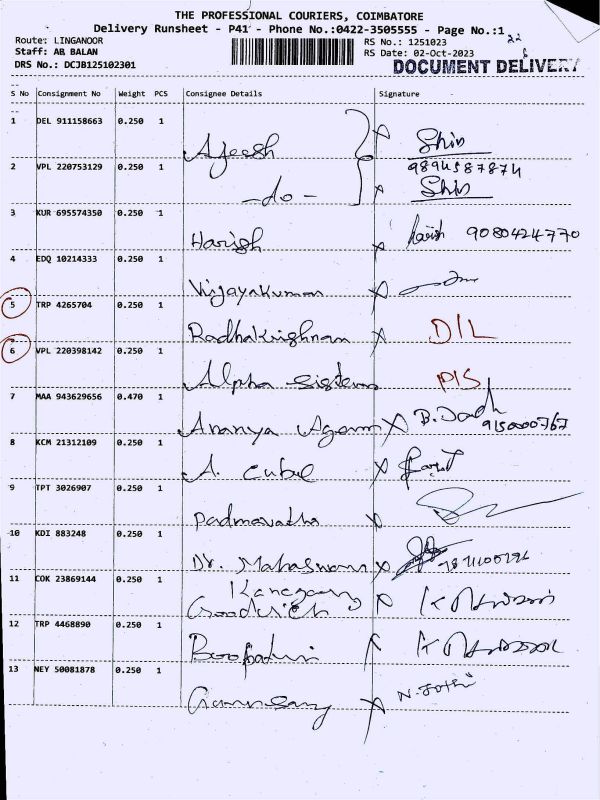 THE PROFESSIONAL COURIERS, COIMBATORE
Delivery Runsheet - P41 - Phone No.:0422-3505555 - Page No.:1
22
Route: LINGANOOR RS No.: 1251023
Staff: AB BALAN RS Date: 02-Oct-2023
DRS No.: DCJB125102301 DOCUMENT DELIVERY
S No Consignment No Weight PCS Consignee Details Signature
1 DEL 911158663 0.250 1 Ajeesh Shib
9894587874
2 VPL 220753129 0.250 1 -do- Shib
3 KUR 695574350 0.250 1 Harish 9080424770
4 EDQ 10214333 0.250 1 Vijayakumar
5 TRP 4265704 0.250 1 Radhakrishnan D/L
6 VPL 220398142 0.250 1 Alpha Sistems P/S
7 MAA 943629656 0.470 1 Ananya Agam B.
8 KCM 21312109 0.250 1 A.
9 TPT 3026907 0.250 1 Padmavatha
10 KDI 883248 0.250 1 Dr.
11 COK 23869144 0.250 1
12 TRP 4468890 0.250 1
13 NEY 50081878 0.250 1 N. Jothi